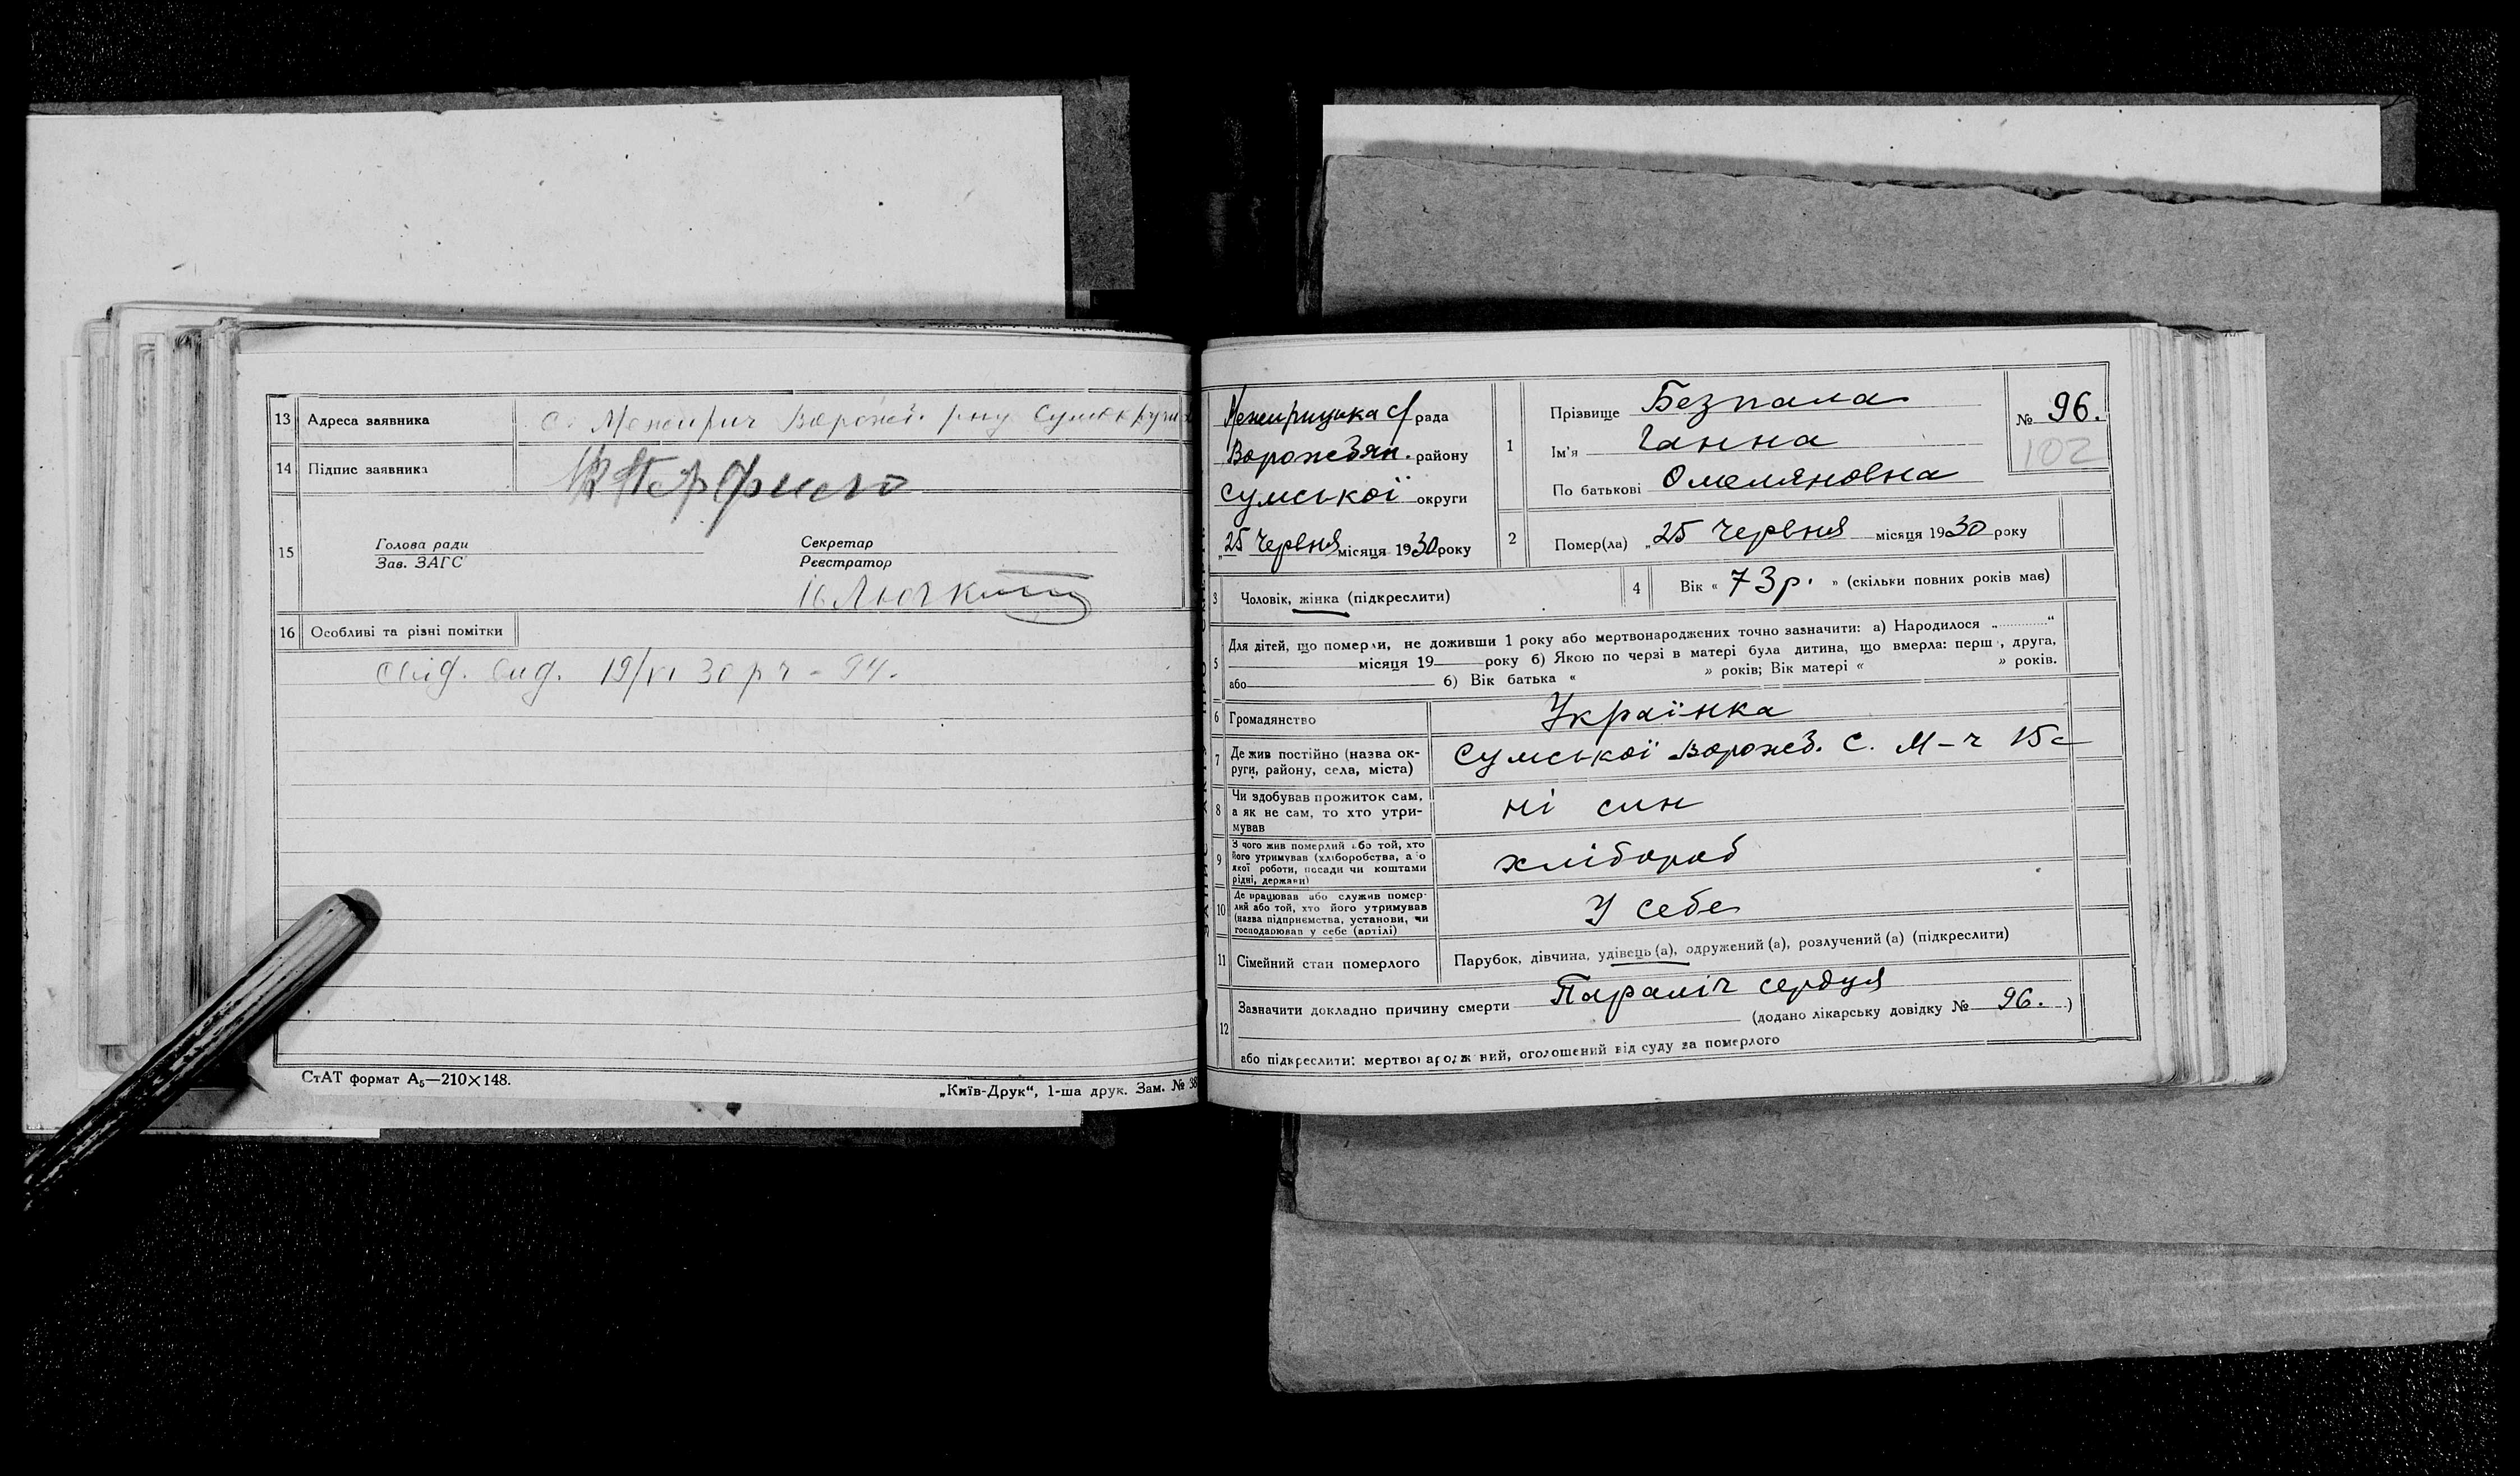 13 Адреса заявника с. Межирич Ворожб. р-ну Сумокруги
14 Підпис заявника
15 Голова ради Секретар
Зав. ЗАГС Реєстратор
16 Особливі та різні помітки
Свід. вид. 19/VI 30 р ч - 94.
СтАТ формат А5—210×148.
„Київ-Друк“, 1-ша друк. Зам. № 38
Межирицька с/рада
Ворожбян. району
Сумської округи
„25 Червня місяця 1930 року
1 Прізвище Безпала
Ім'я Ганна
По батькові Омеляновна
№ 96.
102
2 Помер(ла) „25 Червня місяця 1930 року
3 Чоловік, жінка (підкреслити)
4 Вік « 73 р. » (скільки повних років має)
5 Для дітей, що померли, не доживши 1 року або мертвонароджених точно зазначити: а) Народилося „ “
місяця 19 року б) Якою по черзі в матері була дитина, що вмерла: перша, друга,
або б) Вік батька « » років; Вік матері « » років.
6 Громадянство Українка
7 Де жив постійно (назва ок-
руги, району, села, міста) Сумської Ворожб. с. М-ч 15 с
8 Чи здобував прожиток сам,
а як не сам, то хто утри-
мував ні син
9 З чого жив померлий або той, хто
його утримував (хліборобства, або
якої роботи, посади чи коштами
рідні, держави) хлібороб
10 Де працював або служив помер-
лий або той, хто його утримував
(назва підприємства, установи, чи
господарював у себе (артілі) У себе
11 Сімейний стан померлого Парубок, дівчина, удівець (а), одружений (а), розлучений (а) (підкреслити)
12 Зазначити докладно причину смерти Параліч сердця
(додано лікарську довідку № 96. )
або підкреслити: мертвонароджений, оголошений від суду за померлого